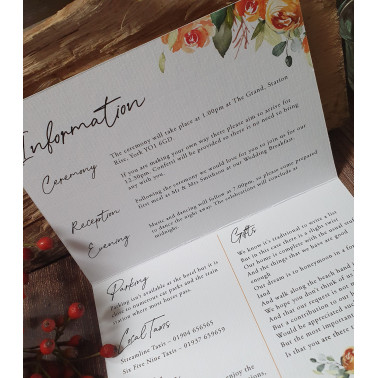 Information
Ceremony
The ceremony will take place at 1.00pm at The Grand, Station
Rise, York YO1 6GD.
If you are making your own way there please aim to arrive for
12.30pm. Confetti will be provided so there is no need to bring
any with you.
Reception
Following the ceremony we would love for you to join us for our
first meal as Mr & Mrs Sandison at our Wedding Breakfast.
Evening
Music and dancing will follow at 7.00pm, so please come prepared
to dance the night away. The celebrations will conclude at
midnight
Parking
Parking isn't available at the hotel but it is
close to numerous car parks and the train
station where most hotels pass.
Local Taxis
Streamline Taxis - 01904 656565
Six Five Nine Taxis - 01937 659659
Gifts
We know it's traditional to write a list
But in this case there is a slight twist
Our home is complete with the usual stuff
And the things that we have are good
enough
Our dream is to honeymoon in a
land
And walk along the beach hand
We hope you don't think of us
And that our request is not
But a contribution to our
Would be appreciated
But the most important
Is that you are there